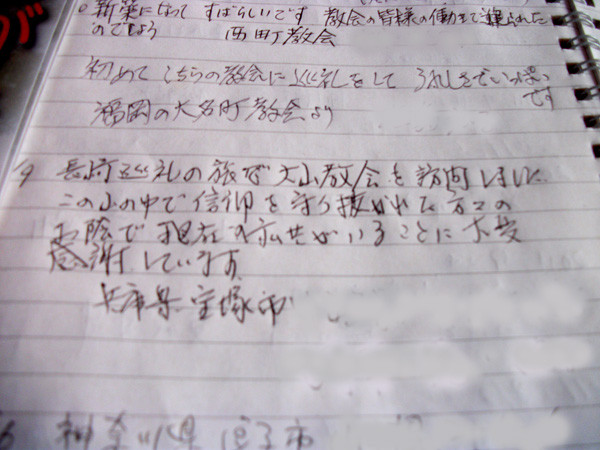 新築になって すばらしいです 教会の皆様の働きで建られた
のでしょう 西町教会
初めて こちらの教会に巡礼をして うれしさでいっぱい
です
福岡の大名町教会より
9 長崎巡礼の旅で大山教会を訪問しました
この山の中で信仰を守り抜かれた方々の
お陰で現在の私共がいることに大変
感謝しています。
兵庫県宝塚市
神奈川県逗子市